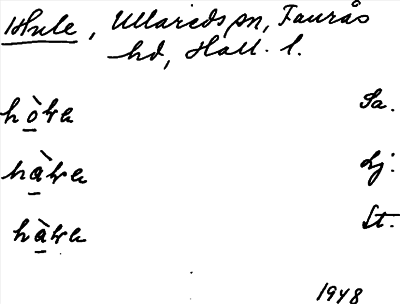 Hule, Ullareds sn, Faurås
hd, Hall. l.
hò̱lɐ Sa.
hà̱lɐ Lj.
hà̱lɐ St.
1948